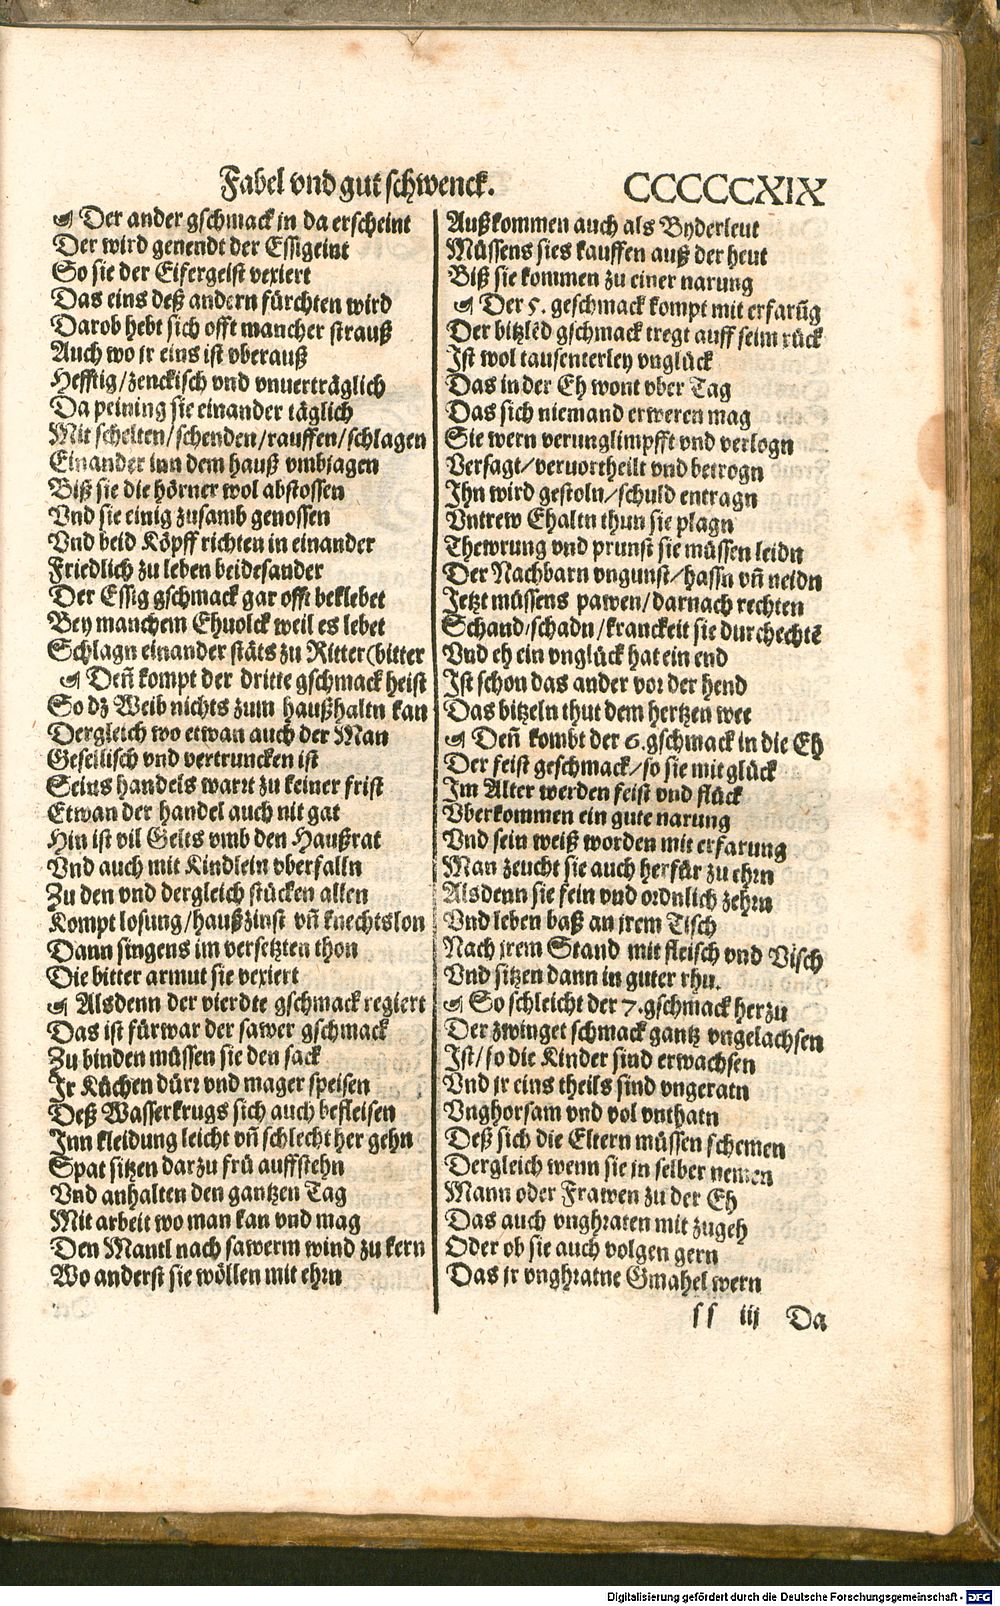 Fabel vnd gut schwenck. CCCCCCXIX
☙ Der ander gschmack jn da erscheint
Der wird genendt der Essigeint
So sie der Eifergeist vexiert
Das eins deß andern fürchten wird
Darob hebt sich offt mancher strauß
Auch wo jr eins ist vberauß
Hefftig/zenckisch vnd vnuerträglich
Da peining sie einander täglich
Mit schelten/schenden/rauffen/schlagen
Einander inn dem hauß vmbjagen
Biß sie die hörner wol abstossen
Vnd sie einig zusamb genossen
Vnd beid Köpff richten in einander
Friedlich zu leben beidesander
Der Essig gschmack gar offt beklebet
Bey manchem Ehuolck weil es lebet
Schlagn einander stäts zu Ritter (bitter
☙ Deñ kompt der dritte gschmack heist
So dz Weib nichts zum haußhaltn kan
Dergleich wo etwan auch der Man
Gesellisch vnd vertruncken ist
Seins handels wart zu keiner frist
Etwan der handel auch nit gat
Hin ist vil Gelts vmb den Haußrat
Vnd auch mit Kindlein vberfalln
Zu den vnd dergleich stücken allen
Kompt losung/haußzinst vñ knechtslon
Dann singens im versetzten thon
Die bitter armut sie vexiert
☙ Alsdenn der vierdte gschmack regiert
Das ist fürwar der sawer gschmack
Zu binden müssen sie den sack
Jr Küchen dürr vnd mager speisen
Deß Wasserkrugs sich auch befleisen
Jnn kleidung leicht vñ schlecht her gehn
Spat sitzen darzu frü auffstehn
Vnd anhalten den gantzen Tag
Mit arbeit wo man kan vnd mag
Den Mantl nach sawerm wind zu kern
Wo anderst sie wöllen mit ehrn
Außkommen auch als Byderleut
Müssens sies kauffen auß der heut
Biß sie kommen zu einer narung
☙ Der 5. geschmack kompt mit erfarũg
Der bitzlẽd gschmack tregt auff seim rück
Jst wol tausenterley vnglück
Das in der Eh wont vber Tag
Das sich niemand erweren mag
Sie wern verunglimpfft vnd verlogn
Versagt/veruortheilt vnd betrogn
Jhn wird gestoln/schuld entragn
Vntrew Ehaltn thun sie plagn
Thewrung vnd prunst sie müssen leidn
Der Nachbarn vngunst/hassn vñ neidn
Jetzt müssens pawen/darnach rechten
Schand/schadn/kranckeit sie durchechtẽ
Vnd eh ein vnglück hat ein end
Jst schon das ander vor der hend
Das bitzeln thut dem hertzen wee
☙ Deñ kombt der 6.gschmack in die Eh
Der feist geschmack/so sie mit glück
Jm Alter werden feist vnd flück
Vberkommen ein gute narung
Vnd sein weiß worden mit erfarung
Man zeucht sie auch herfür zu ehrn
Alsdenn sie fein vnd ordnlich zehrn
Vnd leben baß an jrem Tisch
Nach jrem Stand mit fleisch vnd Visch
Vnd sitzen dann in guter rhu.
☙ So schleicht der 7.gschmack herzu
Der zwinget schmack gantz vngelachsen
Jst/so die Kinder sind erwachsen
Vnd jr eins theils sind vngeratn
Vnghorsam vnd vol vnthatn
Deß sich die Eltern müssen schemen
Dergleich wenn sie in selber nemen
Mann oder Frawen zu der Eh
Das auch vnghraten mit zugeh
Oder ob sie auch volgen gern
Das jr vnghratne Gmahel wern
ſſ iij Da
Digitalisierung gefördert durch die Deutsche Forschungsgemeinschaft - DFG